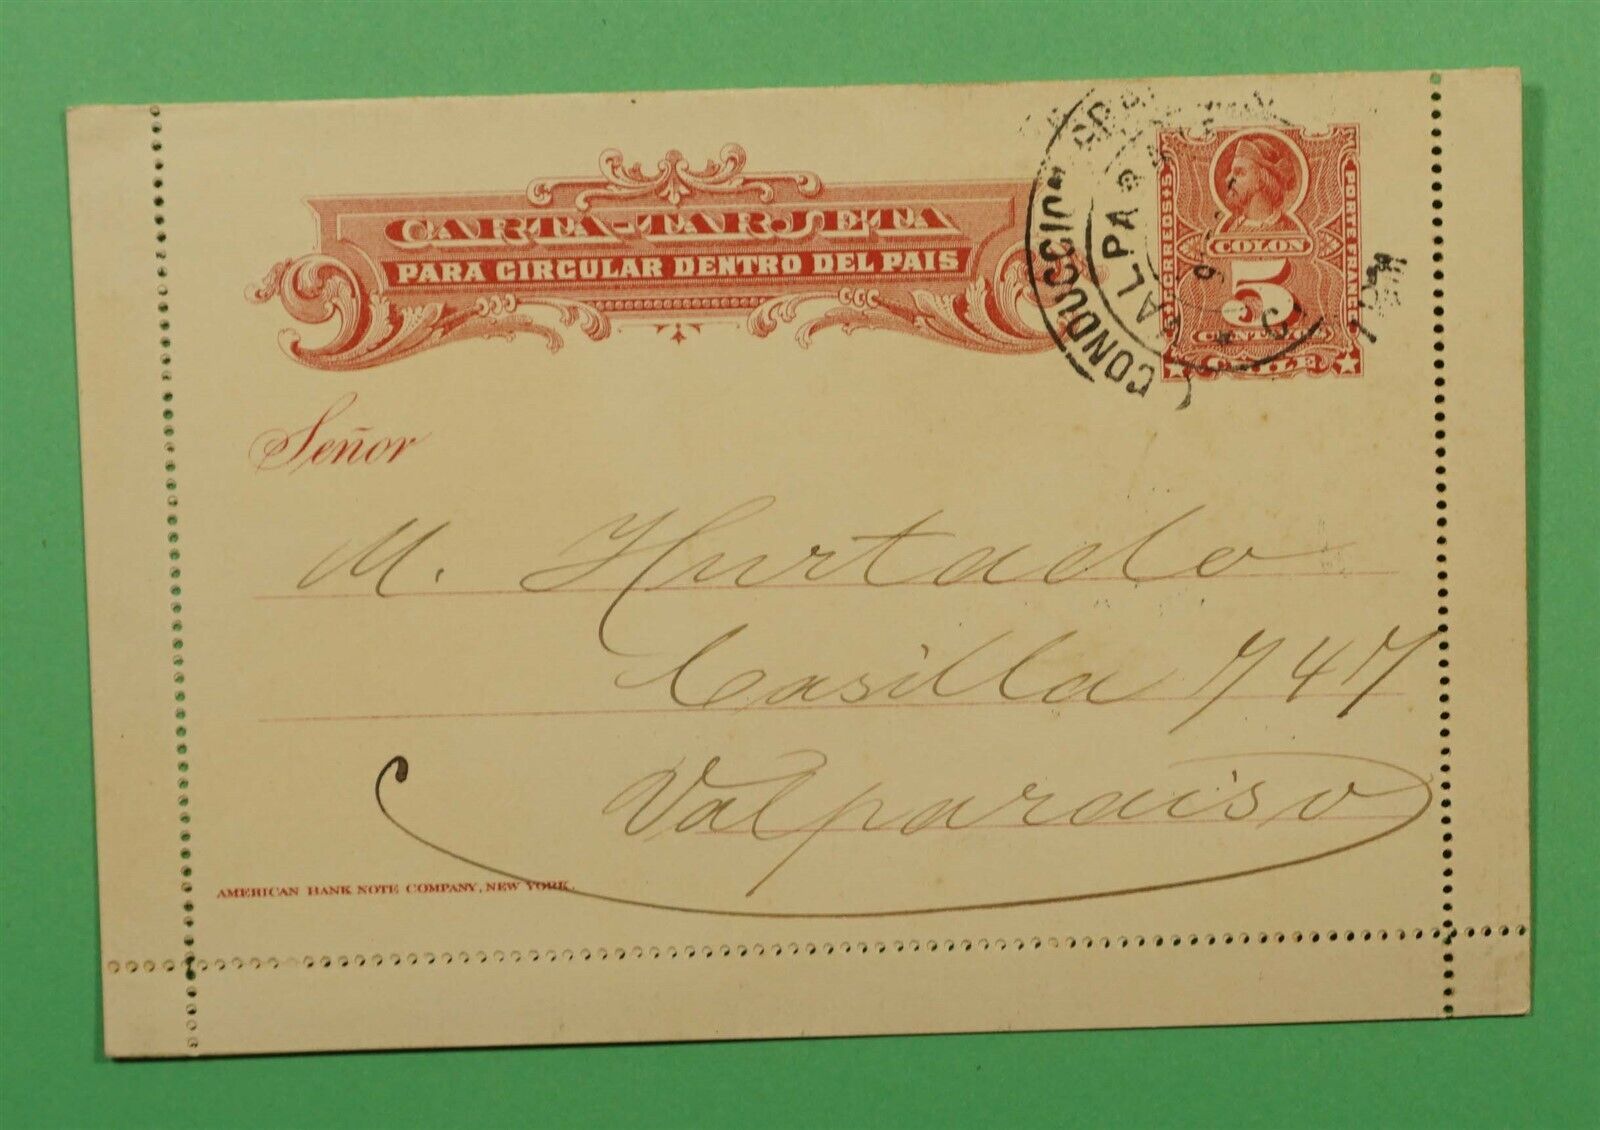 CARTA-TARJETA
PARA CIRCULAR DENTRO DEL PAIS
CORREOS
PORTE FRANCO
COLON
5
CENTAVOS
CHILE
CONDUCCION
VALPARAISO
Señor
M. Hurtado
Casilla 747
Valparaiso
AMERICAN BANK NOTE COMPANY, NEW YORK.